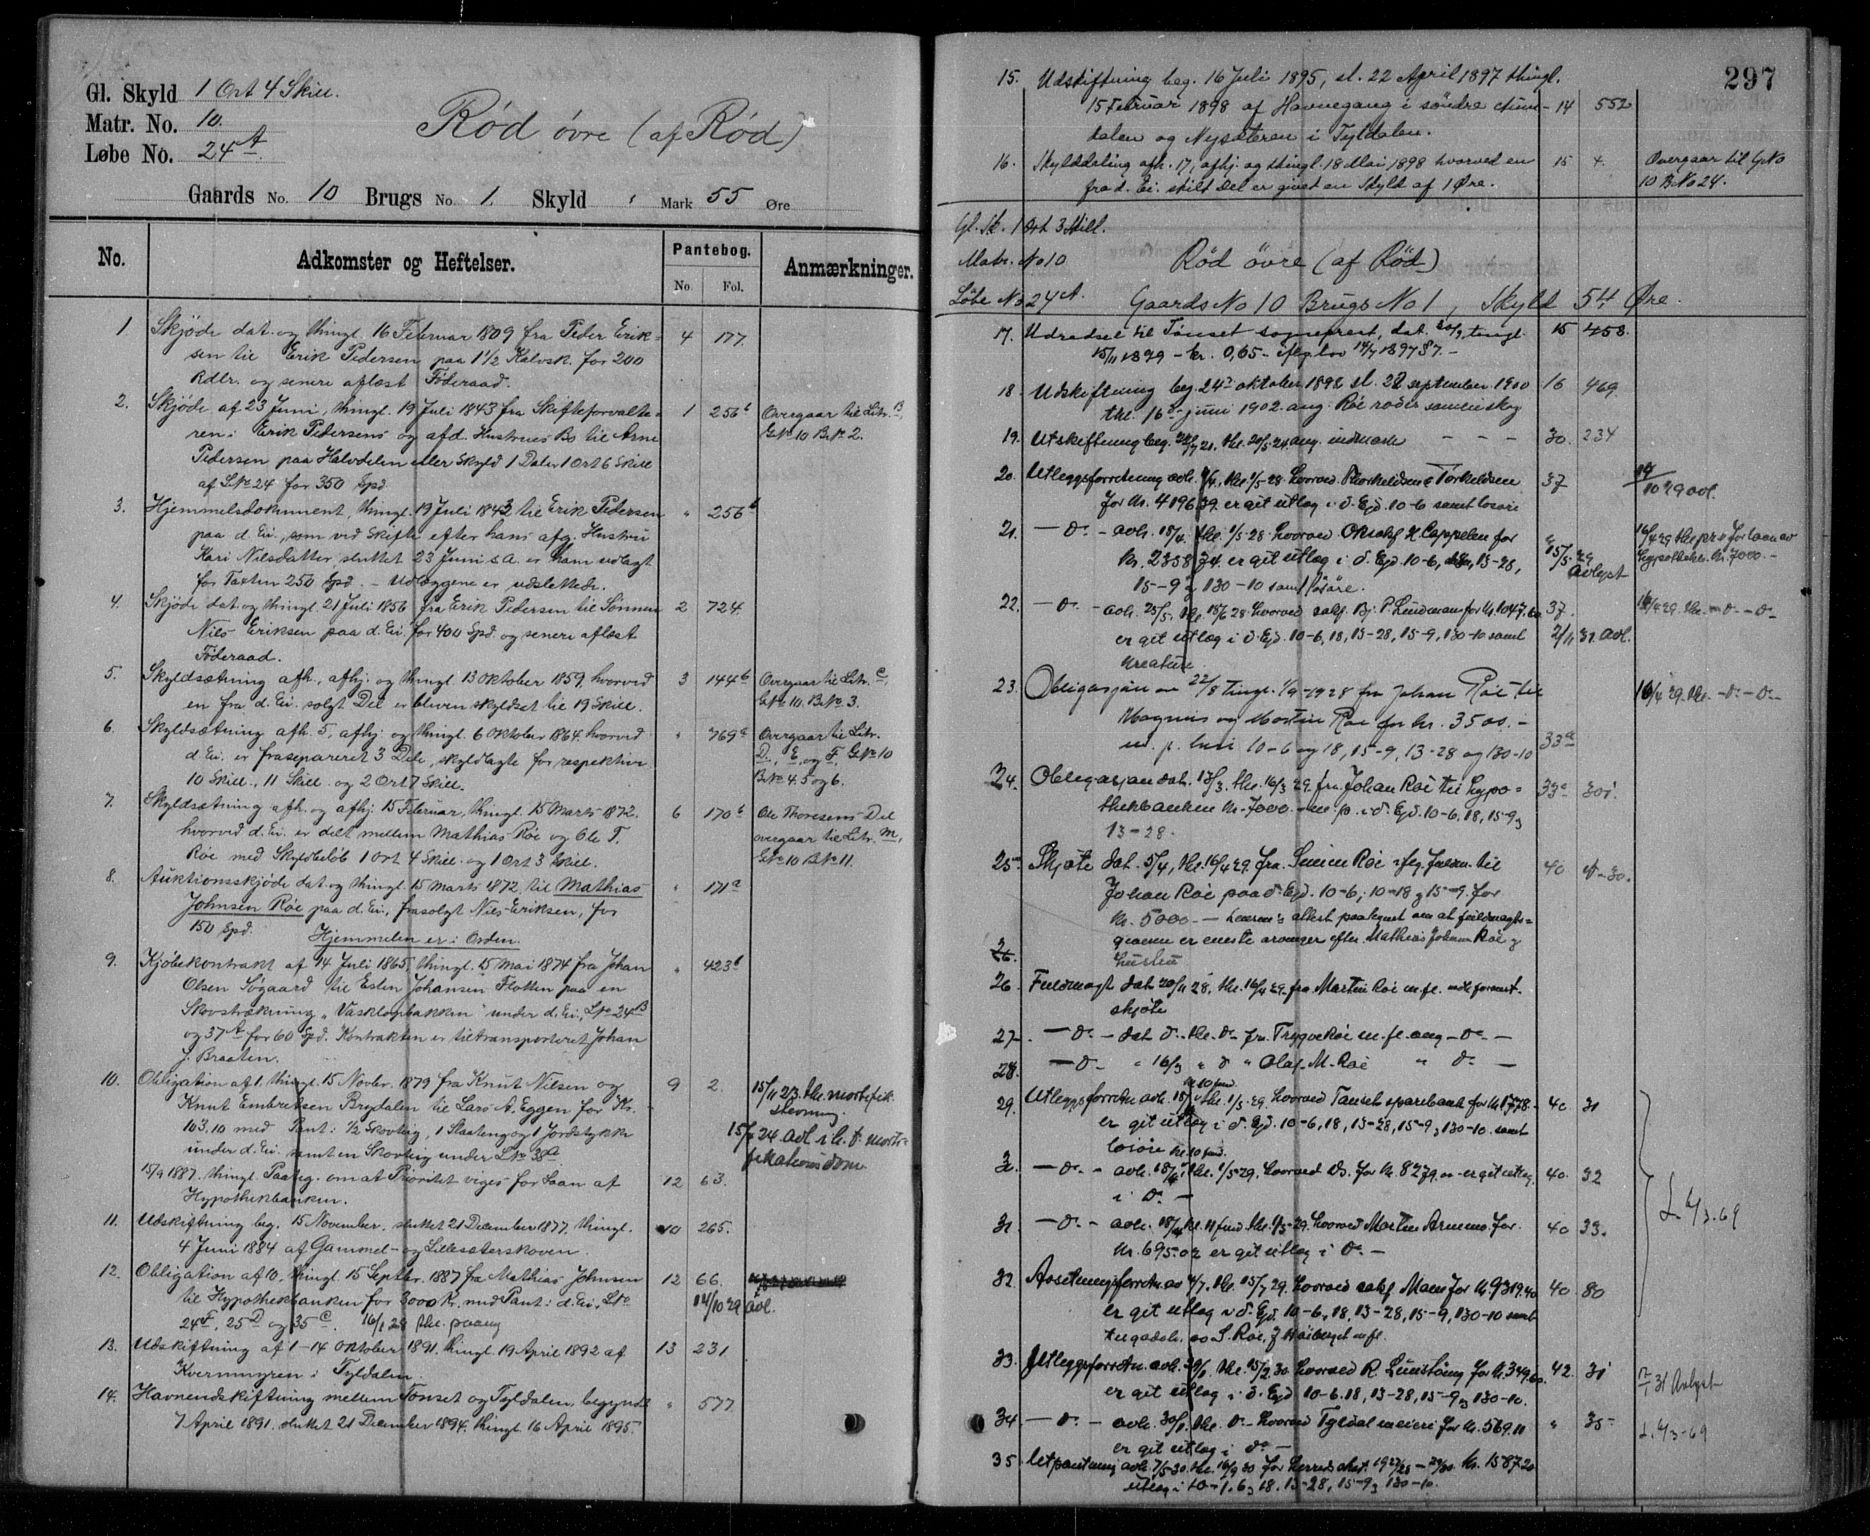 Gl. Skyld 1 Ort 4 Skill.
Matr. No. 10.
Løbe No. 24 A.
Rød øvre (af Rød)
Gaards No. 10 Brugs No. 1. Skyld , Mark 55 Øre
No. Adkomster og Heftelser. Pantebog. No. Fol. Anmærkninger.
1. Skjøde dat. og thingl. 16 Februar 1809 fra Peder Erik- 4 177.
sen til Erik Pedersen paa 1½ Kalvsk. for 200
Rdlr. og senere aflæst Føderaad.
2. Skjøde af 23 Juni, thingl. 19 Juli 1843 fra Skifteforvalte- 1 256 b Overgaar til Litr. B,
ren i Erik Pedersens og afd. Hustrues Bo til Arne G.No 10 B.No 2.
Pedersen paa Halvdelen eller Skyld 1 Daler 1 Ort 6 Skill
af L.No 24 for 350 Spd
3. Hjemmelsdokument, thingl. 19 Juli 1843 til Erik Pedersen " 256 b
paa d. Ei., som ved Skifte efter hans afg. Hustru
Kari Nilsdatter, sluttet 23 Juni s.A. er ham udlagt
for Taxten 250 Spd. - Udlæggene er udslettede.
4. Skjøde dat. og thingl. 21 Juli 1856 fra Erik Pedersen til Sønnen 2 724.
Nils Eriksen paa d. Ei. for 400 Spd. og senere aflæst
Føderaad.
5. Skyldsætning afh., afhj. og thingl. 13 Oktober 1859, hvorved 3 144 b Overgaar til Litr. C,
en fra d. Ei. solgt Del er bleven skyldsat til 19 Skill. G.No 10 B.No 3.
6. Skyldsætning afh. 5, afhj. og thingl. 6 Oktober 1864, hvorved " 769 a Overgaar til Litr.
d. Ei. er fraseparet 3 Dele, skyldlagte for respektive D, E, og F, G.No 10
10 Skill., 11 Skill. og 2 Ort 7 Skill. B.No 4.5 og 6.
7. Skyldsætning afh. og afhj. 15 Februar, thingl. 15 Marts 1872. 6 170 b Ole Thoresens Del
hvorved d. Ei. er delt mellem Mathias Røe og Ole T. overgaar til Litr. M,
Røe med Skyldbeløb 1 Ort 4 Skill. og 1 Ort 3 Skill. G.No 10 B.No 11.
8. Auktionsskjøde dat. og thingl. 15 Marts 1872 til Mathias " 171 a
Johnsen Røe paa d. Ei., frasolgt Nils Eriksen, for
150 Spd. Hjemmelen er i Orden.
9. Kjøbekontrakt af 14 Juli 1865, thingl. 15 Mai 1874 fra Johan " 423 b
Olsen Søgaard til Esten Johansen Flotten paa en
Skovstrækning "Vasklopbakken" under d. Ei., L.No 24 B
og 37 A for 60 Spd. Kontrakten er tiltransporteret Johan
J. Braaten.
10. Obligation af 1. thingl. 15 Novbr. 1879 fra Knut Nilsen og 9 2. 15/11 23. thl. mortifik.
Knut Embretsen Brydalen til Lars A. Eggen for Kr. stevning.
103.10 med Pant i ½ Skovteig, 1 Slaateng og 1 Jordstykke 24 avl. i h. t. morti-
under d. Ei. samt en Skovteig under L.No fikationsdom
15/9 1887. thingl. Paateg. om at Prioritet viges for Laan af 12 63.
Hypothekbanken.
11. Udskiftning beg. 15 November, sluttet 21 December 1877, thingl. 10 265.
4 Juni 1884 af Gammel- og Lillesæterskoven.
12. Obligation af 10, thingl. 15 Septbr. 1887 fra Mathias Johnsen 12 66.
til Hypothekbanken for 3000 Kr. med Pant i d. Ei., L.No 14/10 29 avl.
24 F, 25 D og 35 C. 16/1 28 thl. paateg
13. Udskiftning af 1-14 Oktober 1891, thingl. 19 April 1892 af 13 231
Kvernmyren i Tyldalen.
14. Havneudskiftning mellem Tønset og Tyldalen, begyndt " 577
7 April 1891. sluttet 21 December 1894, thingl. 16 April 1895.
297
15. Udskiftning beg. 16 Juli 1895, sl. 22 April 1897 thingl.
15 Februar 1898 af Havnegang i søndre 14 552
dalen og Nysæteren i Tyldalen.
16. Skylddeling afh. 17, afhj. og thingl. 18 Mai 1898 hvorved en 15 4. Overgaar til G.No
fra d. Ei. skilt Del er given en Skyld af 1 Øre. 10 B.No 24.
Gl. Sk. 1 Ort 3 Skill.
Matr. No 10 Rød øvre (af Rød)
Løbe No 24 A. Gaards No 10 Brugs No 1, Skyld 54 Øre.
17. Udredsel til Tønset sogneprest, dat. tingl. 15 453.
15/11 1899 - kr. 0,65 - iflg. lov 1897 §7. -
18. Udskiftning beg. 24 oktober 1898 sl. 28 september 1900 16 469.
thl. 16 juni 1902 ang. Røe røder sameieskog
19. Utskiftning beg. thl. 20/5 24 ang. indmark - - - 30. 234
20. Utlegsforretning avh. thl. 1/5 28 hvorved Torkeldsen 37
for kr. 4196.39 er git utlæg i d. Ejd. 10-6 samt løsøre 10 29 avl.
21. - do. - avh. 18/4. thl. 1/5 28 hvorved Cappelen for 16/4 29 thl. pr. for laan av
kr. 2358.74 er git utlæg i d. Ejd. 10-6, 13-28, 15/5 29 Avlyst Hypothekbk. kr. 7000. -
15-9 130-10 samt løsøre.
22. - do. - avh. 25/5. thl. 15/6 28 hvorved sakf. P. Lindman for kr. 1047.60 37. 16/4 29. thl. - do - do -
er git utlæg i d. Ejd. 10-6, 18, 13-28, 15-9, 130-10 samt 2/11 31. avl.
kreature.
23. Obligasjon av 22/8 tingl. 1/9-1928 fra Johan Røe til 16/4 29. thl. - do - do -
Magnus og Martin Røe for kr. 3500. -
m. p. bnr 10-6 og 18, 15-9, 13-28 og 130-10 33 a
24. Obligasjon dat. 13/3, thl. 16/3 29. fra Johan Røe til Hypo- 33 c 301.
thekbanken kr. 7000. - m. p. i d. Ejd. 10-6, 18, 15-9,
13-28.
25. Skjøte dat. 5/4, thl. 16/4 29. fra Simen Røe iflg. fuldm. til 40
Johan Røe paa d. Ejd. 10-6, 10-18 og 15-9. for
kr. 5000. - Lensm's attest paategnet om at fuldmagts-
giverne er eneste arvinger efter Mathias Johnsen Røe og
hustru
26. Fuldmagt dat 20/11 28, thl. 16/4 29. fra Martin Røe m. fl. utst. forannt.
skjøte
27. - do. - dat do. thl. do. fra Trygve Røe m. fl. ang - do. -
28. - do. - " 16/3 " do " Olaf M. Røe " do. -
29. Utlegsforretn. avh. 18/4 thl. 1/5 29. hvorved Tønset sparebank for kr. 1778 - 40 31
er git utlæg i d. Ejd. 10-6, 18, 13-28, 15-9, 130-10. samt
løsøre
- do. - avh. 18/4, thl. 1/5-29. hvorved Ds. for kr. 8279. - er git utlæg 40. 32
i do. -
31 - do. - avh. 18/4 thl. 1/5-29. hvorved Morten Aremo for 40 33.
kr. 695.02 er git utlæg i do. -
L. 4/3.69
32. Avsetningsforretn. av 4/7. thl. 15/7 29. hvorved sakf. Moen for kr. 9319.40 40. 80
er git utlæg i d. Ejd. 10-6, 18, 13-28, 15-9, 130-10 samt
S. Røe, J. m. fl.
33. Utlegsforretn. avh. thl. 15/2 30 hvorved R. Lunstøing for kr. 349.60 42. 31 31 Avlyst
er git utlæg i d. Ejd. 10-6, 18, 13-28, 15-9, 130-10.
34 - do. - avh. 30/1. thl. do. - hvorved Tyldal meieri for kr. 569.11 " 35 L. 4/3-69
er git utlæg i do -
35 Utpantning avh. 7/5 30. thl. 30 for herredsskat 1927/28 - 29/30. kr. 1587.20
utlæg i 10-1, 6, 18, 13-28, 15-9, 130-10.